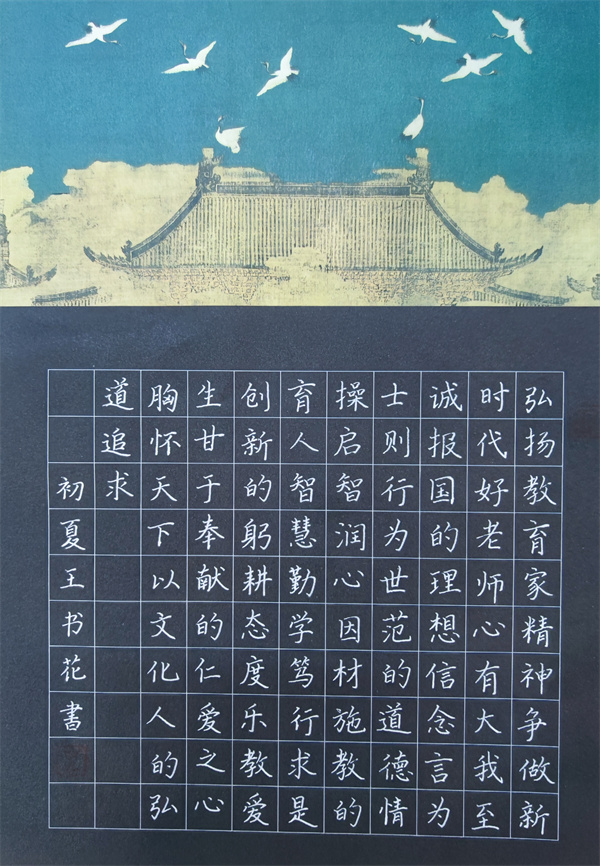 弘扬教育家精神争做新
时代好老师心有大我至
诚报国的理想信念言为
士则行为世范的道德情
操启智润心因材施教的
育人智慧勤学笃行求是
创新的躬耕态度乐教爱
生甘于奉献的仁爱之心
胸怀天下以文化人的弘
道追求
初夏王书花書